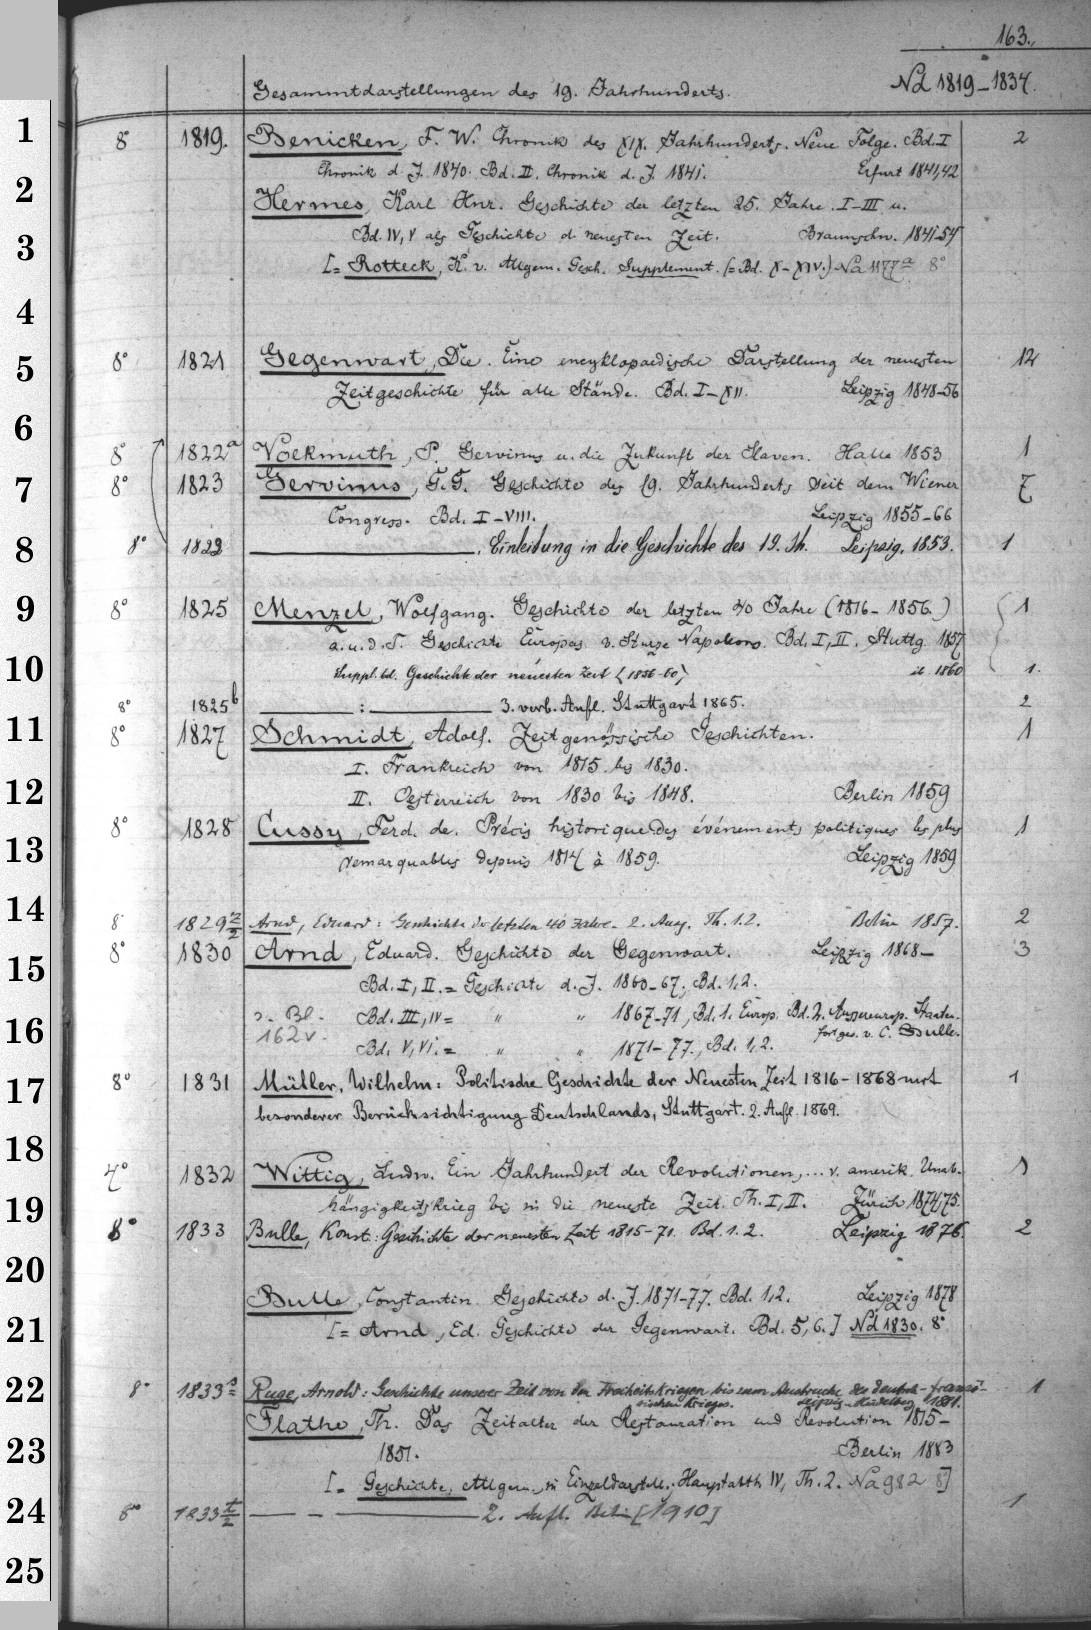 163.
Gesammtdarstellungen des 19. Jahrhunderts. Nd 1819–1834.
1
8° 1819. Benicken, F. W. Chronik des XIX. Jahrhunderts. Neue Folge. Bd. I 2
Chronik d. J. 1840. Bd. II. Chronik d. J. 1841. Erfurt 1841,42
2
Hermes, Karl Hnr. Geschichte der letzten 25. Jahre. I–III u.
3
Bd. IV, V als Geschichte d. neuesten Zeit. Braunschw. 1841–54
[= Rotteck, K. v. Allgem. Gesch. Supplement. (= Bd. X–XIV.) Na 1177a 8°
4
5
8° 1821 Gegenwart, Die. Eine encyklopaedische Darstellung der neuesten 12
Zeitgeschichte für alle Stände. Bd. I–XII. Leipzig 1848–56
6
8° 1822a Volkmuth, P. Gervinus u. die Zukunft der Slaven. Halle 1853 1
7
8° 1823 Gervinus, G. G. Geschichte des 19. Jahrhunderts seit dem Wiener 7
Congress. Bd. I–VIII. Leipzig 1855–66
8
8° 1822 ———. Einleitung in die Geschichte des 19. Jh. Leipzig. 1853. 1
9
8° 1825 Menzel, Wolfgang. Geschichte der letzten 40 Jahre (1816–1856.) 1
a. u. d. T. Geschichte Europas v. Sturze Napoleons. Bd. I, II. Stuttg. 1857
10
Suppl. bd. Geschichte der neuesten Zeit (1856–60) ib. 1860 1.
8° 1825b ——— : ——— 3. verb. Aufl. Stuttgart 1865. 2
11
8° 1827 Schmidt, Adolf. Zeitgenössische Geschichten. 1
I. Frankreich von 1815 bis 1830.
12
II. Oesterreich von 1830 bis 1848. Berlin 1859
8° 1828 Cussy, Ferd. de. Précis historique des événements politiques les plus 1
13
remarquables depuis 1814 à 1859. Leipzig 1859
14
8° 1829z/2 Arnd, Eduard: Geschichte der letzten 40 Jahre. 2. Ausg. Th. 1.2. Berlin 1857. 2
15
8° 1830 Arnd, Eduard. Geschichte der Gegenwart. Leipzig 1868– 3
Bd. I, II. = Geschichte d. J. 1860–67., Bd. 1,2.
16
s. Bl. 162v. Bd. III, IV = " " 1867–71, Bd. 1. Europ. Bd. 2. Aussereurop. Staaten.
fortges. v. C. Bulle.
Bd. V, VI. = " " 1871–77., Bd. 1,2.
17
8° 1831 Müller, Wilhelm: Politische Geschichte der Neuesten Zeit 1816–1868 mit 1
besonderer Berücksichtigung Deutschlands, Stuttgart. 2. Aufl. 1869.
18
4° 1832 Wittig, Ludw. Ein Jahrhundert der Revolutionen, ... v. amerik. Unab- 1
19
hängigkeitskrieg bis in die neueste Zeit. Th. I, II. Zürich 1874/75.
8° 1833 Bulle, Konst: Geschichte der neuesten Zeit 1815–71. Bd. 1.2. Leipzig 1876. 2
20
Bulle, Constantin. Geschichte d. J. 1871–77. Bd. 1,2. Leipzig 1878
21
[= Arnd, Ed. Geschichte der Gegenwart. Bd. 5, 6.] Nd 1830. 8°
22
8° 1833s Ruge, Arnold: Geschichte unserer Zeit von den Freiheitskriegen bis zum Ausbruche des deutsch-franzö- 1
sischen Krieges. Leipzig-Heidelberg 1881.
Flathe, Th. Das Zeitalter der Restauration und Revolution 1815–
23
1851. Berlin 1883
[= Geschichte, Allgem., in Einzeldarstell.: Hauptabth IV, Th. 2. Na 982 8]
24
8° 1833t/2 —— – ——— 2. Aufl. Berlin [1910] 1
25